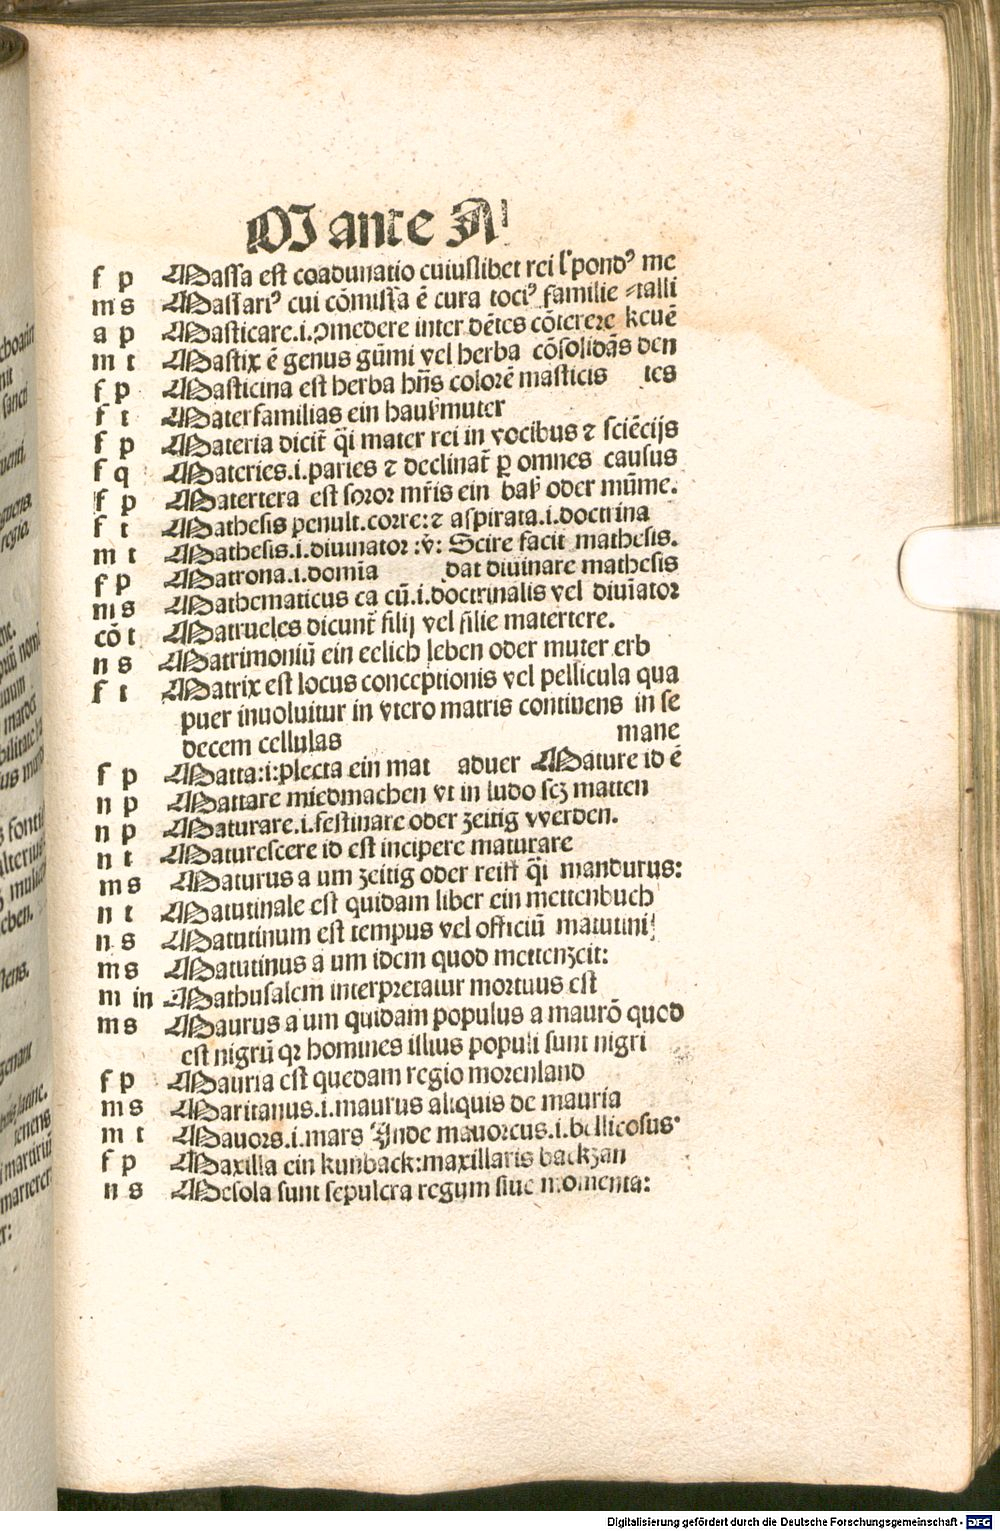 M ante A
f p Massa est coadunatio cuiuslibet rei ſ' pondꝰ me
m s Massariꝰ cui cōmissa ē cura tociꝰ familie talli
a p Masticare .i. ꝯmedere inter dētes cōterere keuē
m t Mastix ē genus gūmi vel herba cōsolidās den
f p Masticina est herba hn̄s colorē masticis tes
f t Materfamilias ein haußmuter
f p Materia dicit̄ q̄i mater rei in vocibus ⁊ sciēcijs
f q Materies .i. paries ⁊ declinat̄ ꝑ omnes causus
f p Matertera est soror mr̄is ein baß oder mūme.
f t Mathesis penult. corre: ⁊ aspirata .i. doctrina
m t Mathesis .i. diuinator : v̄: Scire facit mathesis.
f p Matrona .i. domīa dat diuinare mathesis
m s Mathematicus ca cū .i. doctrinalis vel diuīator
cō t Matrueles dicunt̄ filij vel filie matertere.
n s Matrimoniū ein eelich leben oder muter erb
f t Matrix est locus conceptionis vel pellicula qua
puer inuoluitur in vtero matris continens in se
decem cellulas mane
f p Matta :i: plecta ein mat aduer Mature id ē
n p Mattare miedmachen vt in ludo scꝫ matten
n p Maturare .i. festinare oder zeitig vverden.
n t Maturescere id est incipere maturare
m s Maturus a um zeitig oder reiff q̄i mandurus:
n t Matutinale est quidam liber ein mettenbuch
n s Matutinum est tempus vel officiū matutini
m s Matutinus a um idem quod mettenzeit:
m in Mathusalem interpretatur mortuus est
m s Maurus a um quidam populus a maurō quod
est nigrū qꝛ homines illius populi sunt nigri
f p Mauria est quedam regio morenland
m s Maritanus .i. maurus aliquis de mauria
m t Mauors .i. mars Inde mauorcus .i. bellicosus
f p Maxilla ein kunback: maxillaris backzan
n s Mesola sunt sepulcra regum siue momenta:
Digitalisierung gefördert durch die Deutsche Forschungsgemeinschaft - DFG